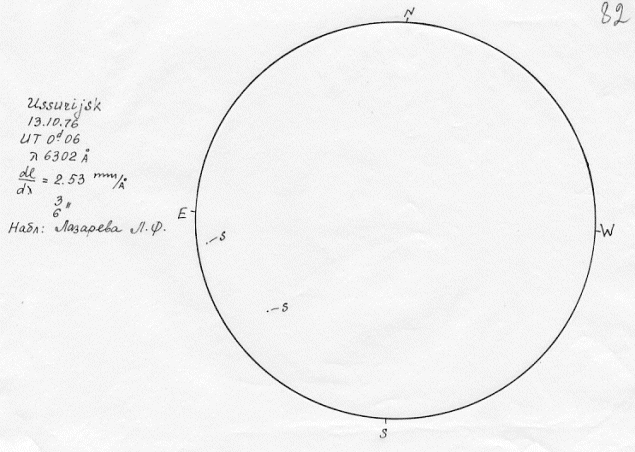 N
82
Ussurijsk
13.10.76
UT 0ᵈ06
λ 6302 Å
dl/dλ = 2.53 mm/Å
3
6"
Набл: Лазарева Л.Ф.
E
W
S
S
S